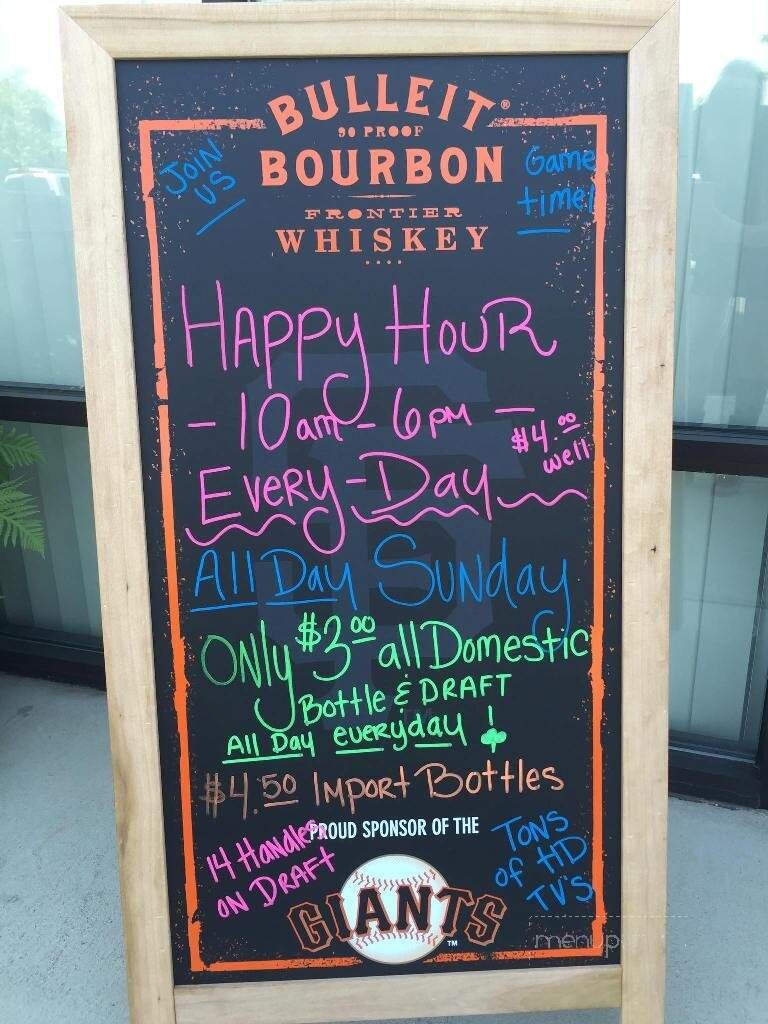 BULLEIT®
90 PROOF
BOURBON
FRONTIER
WHISKEY
JOIN
US
Game
time!
HAPPY HOUR
- 10am - 6pm -
$4.00
well
EVERY-DAY
All Day SUNday
ONly $3.00 all Domestic
Bottle & DRAFT
All Day everyday!
$4.50 IMPORT Bottles
14 Handles
ON DRAFT
PROUD SPONSOR OF THE
TONS
of HD
TV'S
GIANTS
TM
SF
menup